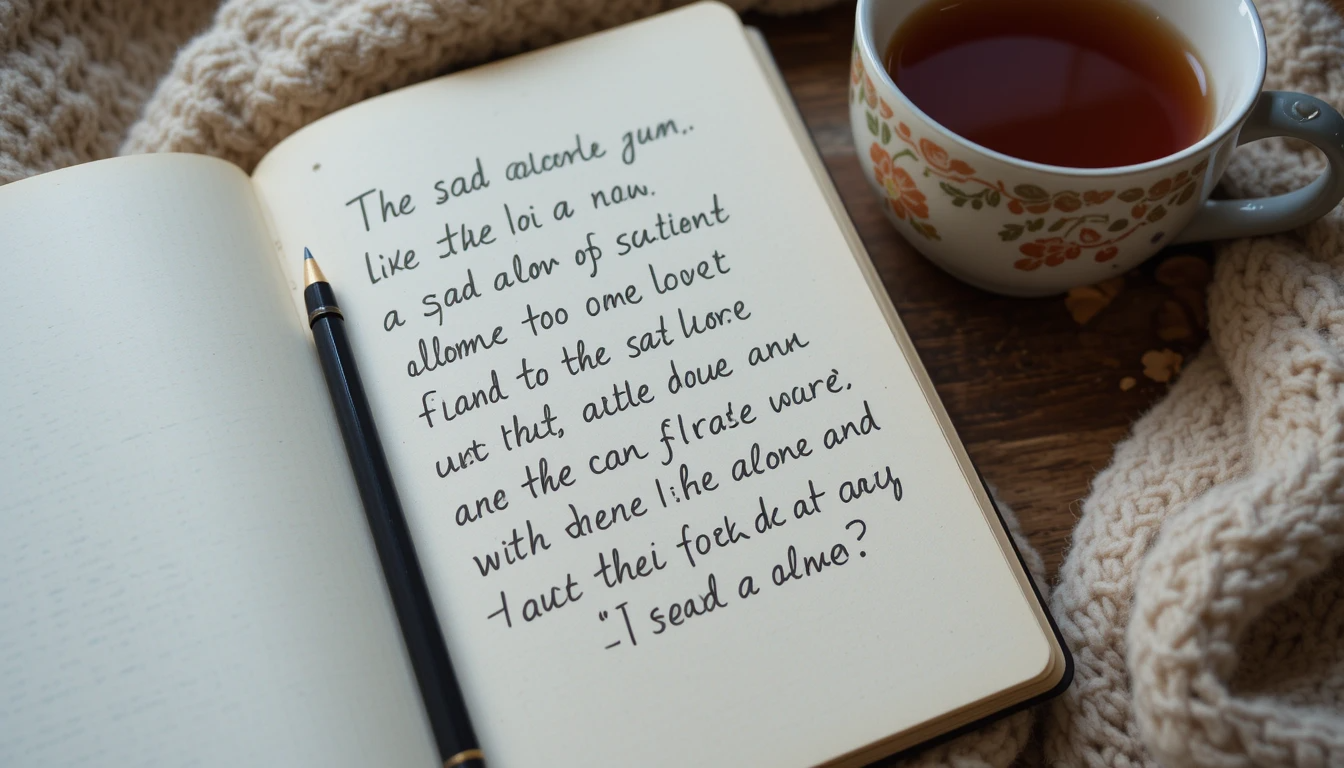 The sad gum..
like the loi a naw.
a sad alow of sutient
allome too ome lovet
fland to the sat
thut, aitle doue ann
ane the can flrase ware.
with dhene like alone and
auct thei at
"I sead a alme?